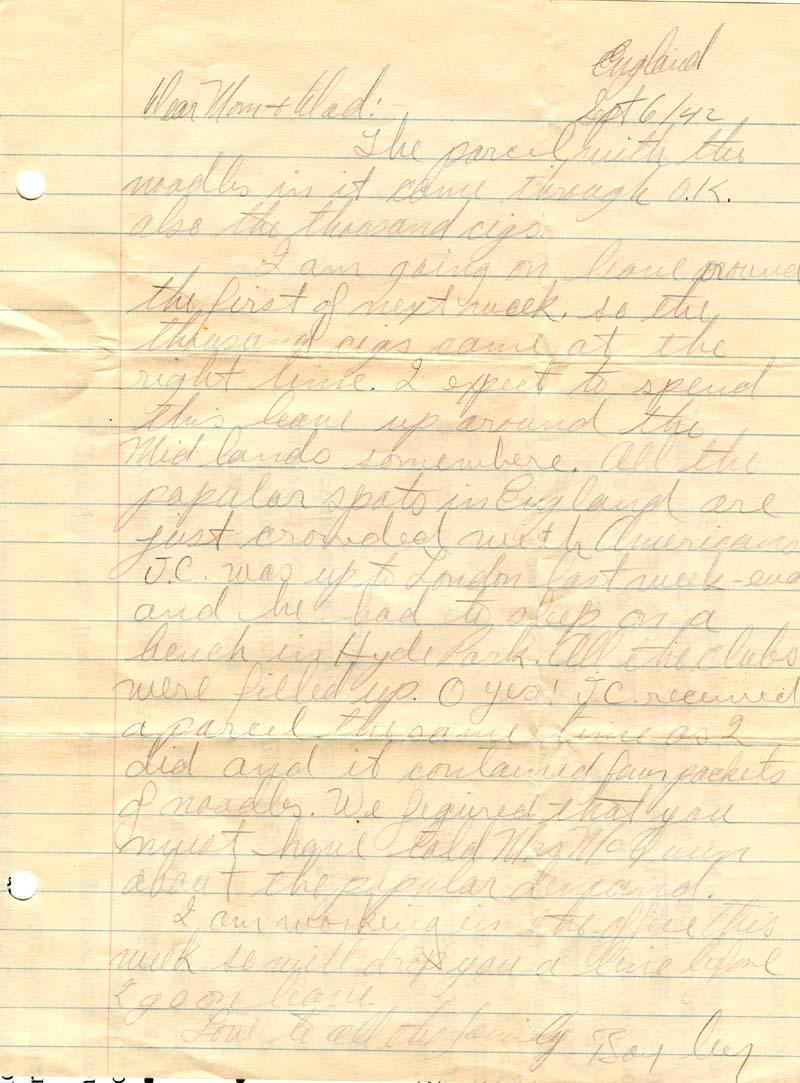 England
Dear Mom + Dad:- Sept 6/42
The parcel with the
noodles in it came through O.K.
also the thousand cigs.
I am going on leave around
the first of next week. so the
thousand cigs came at the
right time. I expect to spend
this leave up around the
Midlands somewhere. All the
popular spots in England are
just crowded with Americans
J.C. was up to London last week-end
and he had to sleep on a
bench in Hyde Park. All the clubs
were filled up. O yes! J.C. received
a parcel the same time as I
did and it contained four packets
of noodles. We figured that you
must have told Mrs
about the popular demand.
I am working in the office this
week so will drop you a line before
I go on leave.
Love to all the family